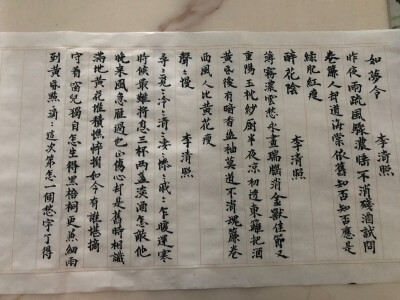 如夢令 李清照
昨夜雨疏風驟濃睡不消殘酒試問
卷簾人却道海棠依舊知否知否應是
綠肥紅瘦
醉花陰 李清照
薄霧濃雲愁永晝瑞腦消金獸佳節又
重陽玉枕紗厨半夜涼初透東籬把酒
黃昏後有暗香盈袖莫道不消魂簾卷
西風人比黃花瘦
聲〻慢 李清照
尋〻覓〻冷〻清〻淒〻慘〻戚〻乍暖還寒
時候最難將息三杯兩盞淡酒怎敵他
晚來風急雁過也正傷心却是舊時相識
滿地黃花堆積憔悴損如今有誰堪摘
守着窗兒獨自怎生得黑梧桐更兼細雨
到黃昏點〻滴〻這次第怎一個愁字了得